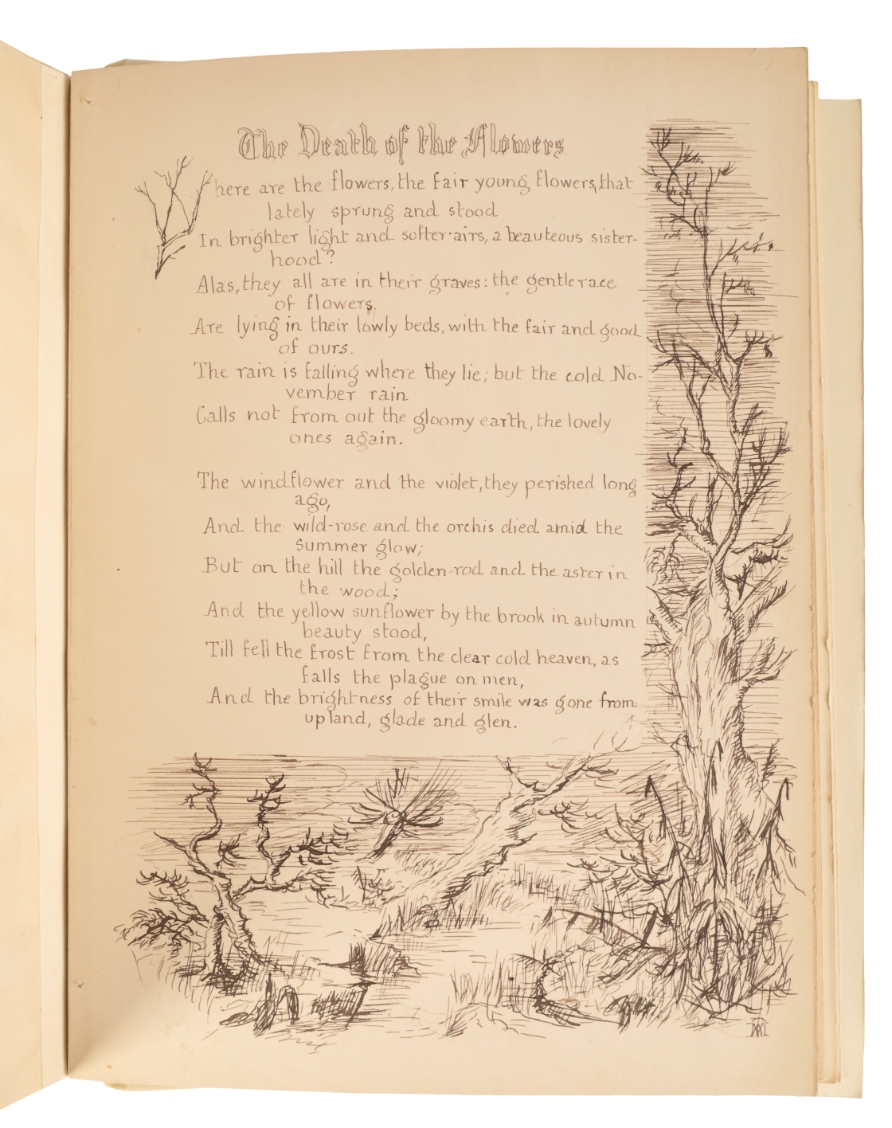 The Death of the Flowers
Where are the flowers, the fair young flowers, that
lately sprung and stood
In brighter light and softer airs, a beauteous sister-
hood?
Alas, they all are in their graves: the gentle race
of flowers,
Are lying in their lowly beds, with the fair and good
of ours.
The rain is falling where they lie; but the cold No-
vember rain
Calls not from out the gloomy earth, the lovely
ones again.
The windflower and the violet, they perished long
ago,
And the wild-rose and the orchis died amid the
summer glow;
But on the hill the golden-rod and the aster in
the wood;
And the yellow sunflower by the brook in autumn
beauty stood,
Till fell the frost from the clear cold heaven, as
falls the plague on men,
And the brightness of their smile was gone from
upland, glade and glen.